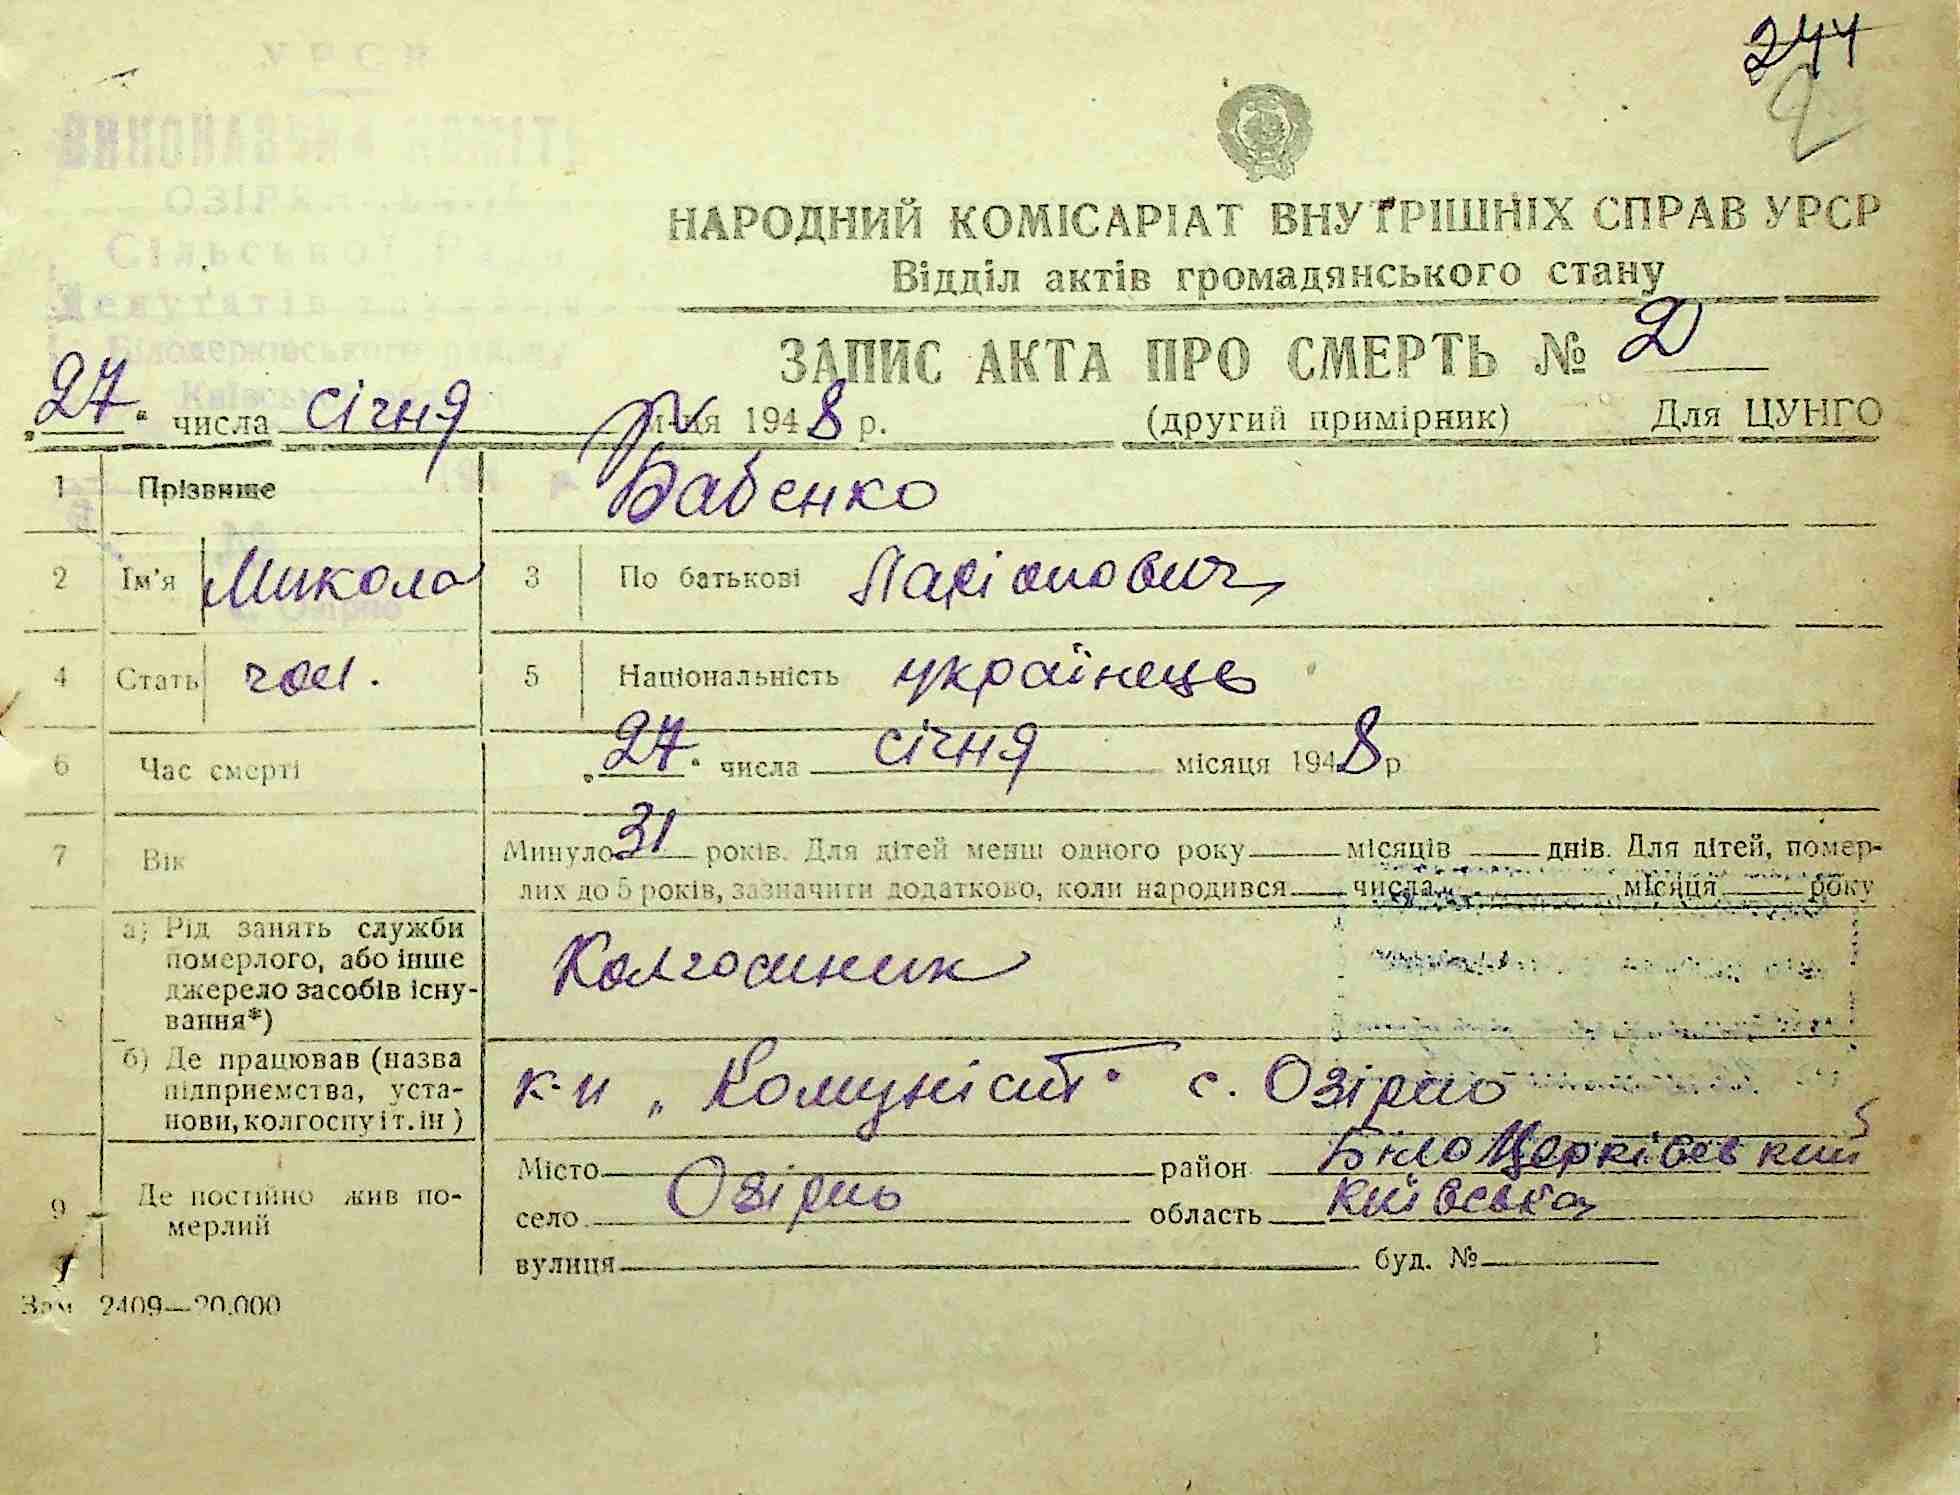 244
2
НАРОДНИЙ КОМІСАРІАТ ВНУТРІШНІХ СПРАВ УРСР
Відділ актів громадянського стану
ЗАПИС АКТА ПРО СМЕРТЬ № 2
„27“ числа січня м-ця 1948 р. (другий примірник) Для ЦУНГО
1 Прізвище Бабенко
2 Ім'я Микола 3 По батькові Ларіонович
4 Стать чол. 5 Національність українець
6 Час смерті „27“ числа січня місяця 1948 р
7 Вік Минуло 31 років. Для дітей менш одного року місяців днів. Для дітей, помер-
лих до 5 років, зазначити додатково, коли народився числа місяця року
а) Рід занять служби
померлого, або інше
джерело засобів існу-
вання*)
Колгоспник
8
б) Де працював (назва
підприємства, уста-
нови, колгоспу і т. ін)
к-п „Комуніст“ с. Озірно
9 Де постійно жив по-
мерлий
Місто район Білоцерківський
село Озірно область Київська
вулиця буд. №
Зам 2409—20.000